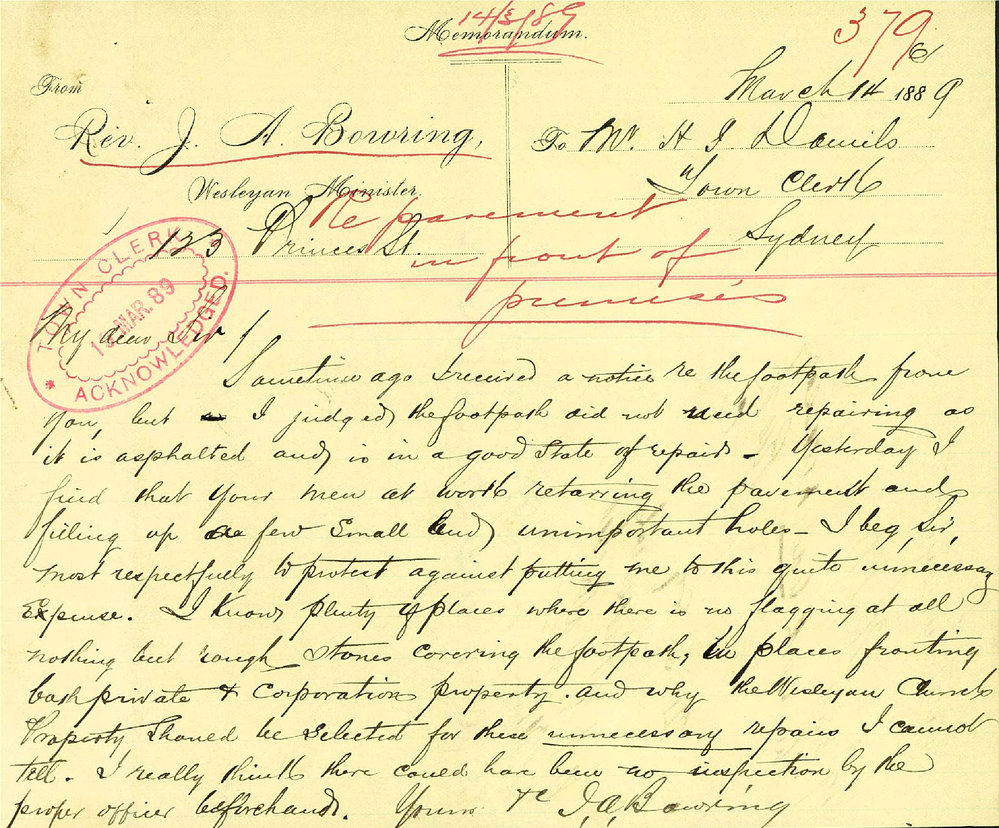 14/3/89
Memorandum.
3796
From
March 14 1889
Rev. J. A. Bowring,
To Mr. H J Daniels
Wesleyan Minister.
Town Clerk
123 Princes St.
Sydney
Re pavement
in front of
premises
TOWN CLERK
MAR. 89
ACKNOWLEDGED.
My dear Sir
Sometime ago I received a notice re the footpath from
you, but I judged the footpath did not need repairing as
it is asphalted and is in a good state of repair - Yesterday I
find that your men at work retarring the pavement and
filling up a few small and unimportant holes - I beg, Sir,
most respectfully to protest against putting me to this quite unnecessary
expense. I know plenty of places where there is no flagging at all
nothing but rough stones covering the footpath, in places fronting
both private & corporation property. and why the Wesleyan Church
Property should be selected for these unnecessary repairs I cannot
tell - I really think there could have been no inspection by the
proper officer beforehand. Yours &c J.A. Bowring